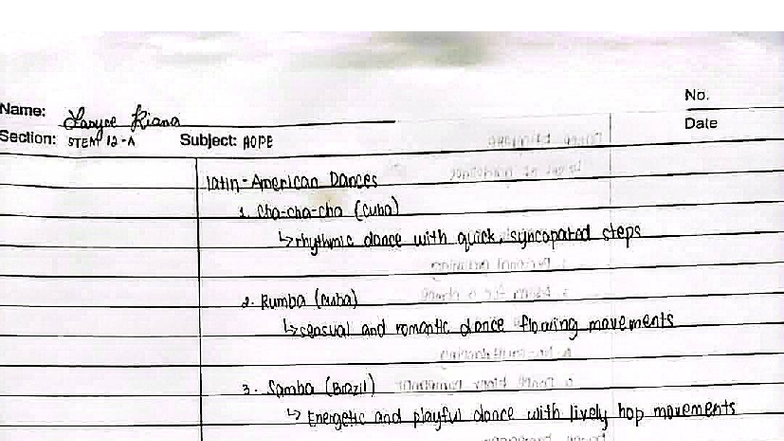 No.
Name: Kiana
Date
Section: STEM 12-A Subject: HOPE
Latin-American Dances
1. Cha-cha-cha (Cuba)
↳rhythmic dance with quick, syncopated steps
2. Rumba (Cuba)
↳sensual and romantic dance flowing movements
3. Samba (Brazil)
↳ Energetic and playful dance with lively hop movements